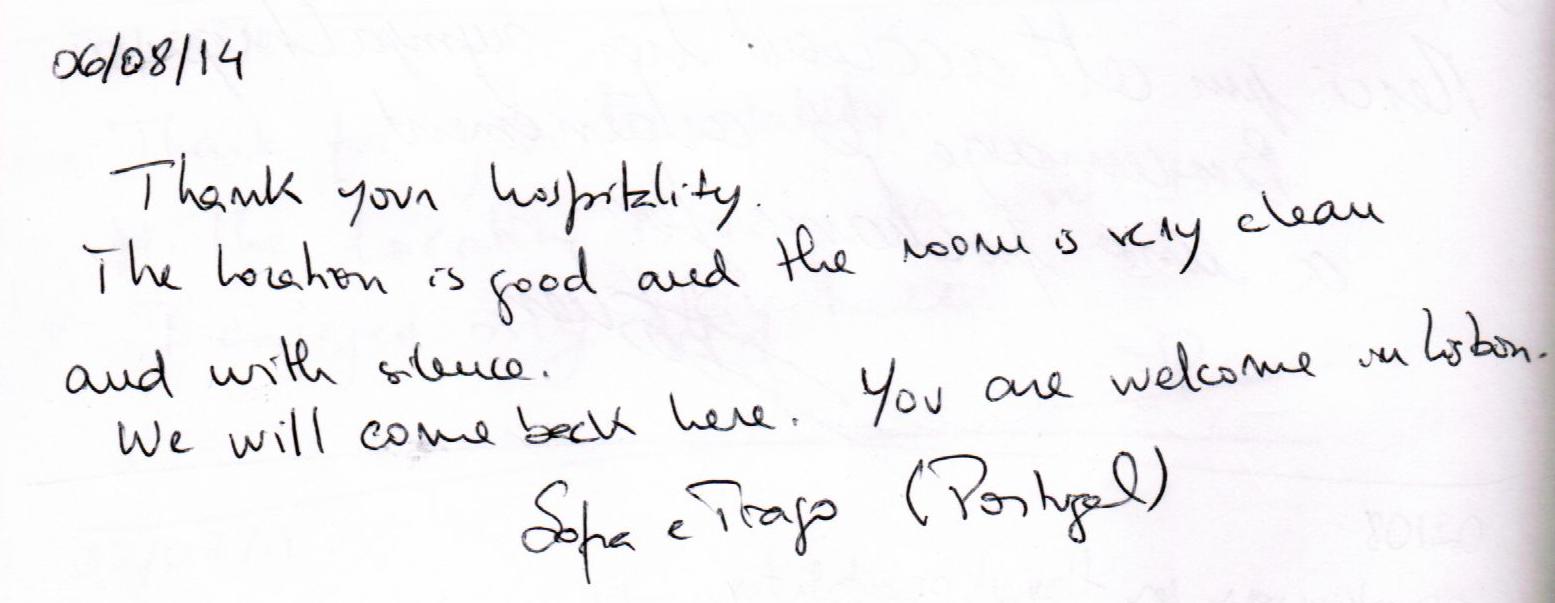 06/08/14
Thank your hospitality.
The location is good and the room is very clean
and with silence.
We will come back here. You are welcome in Lisbon.
Sofia e Tiago (Portugal)